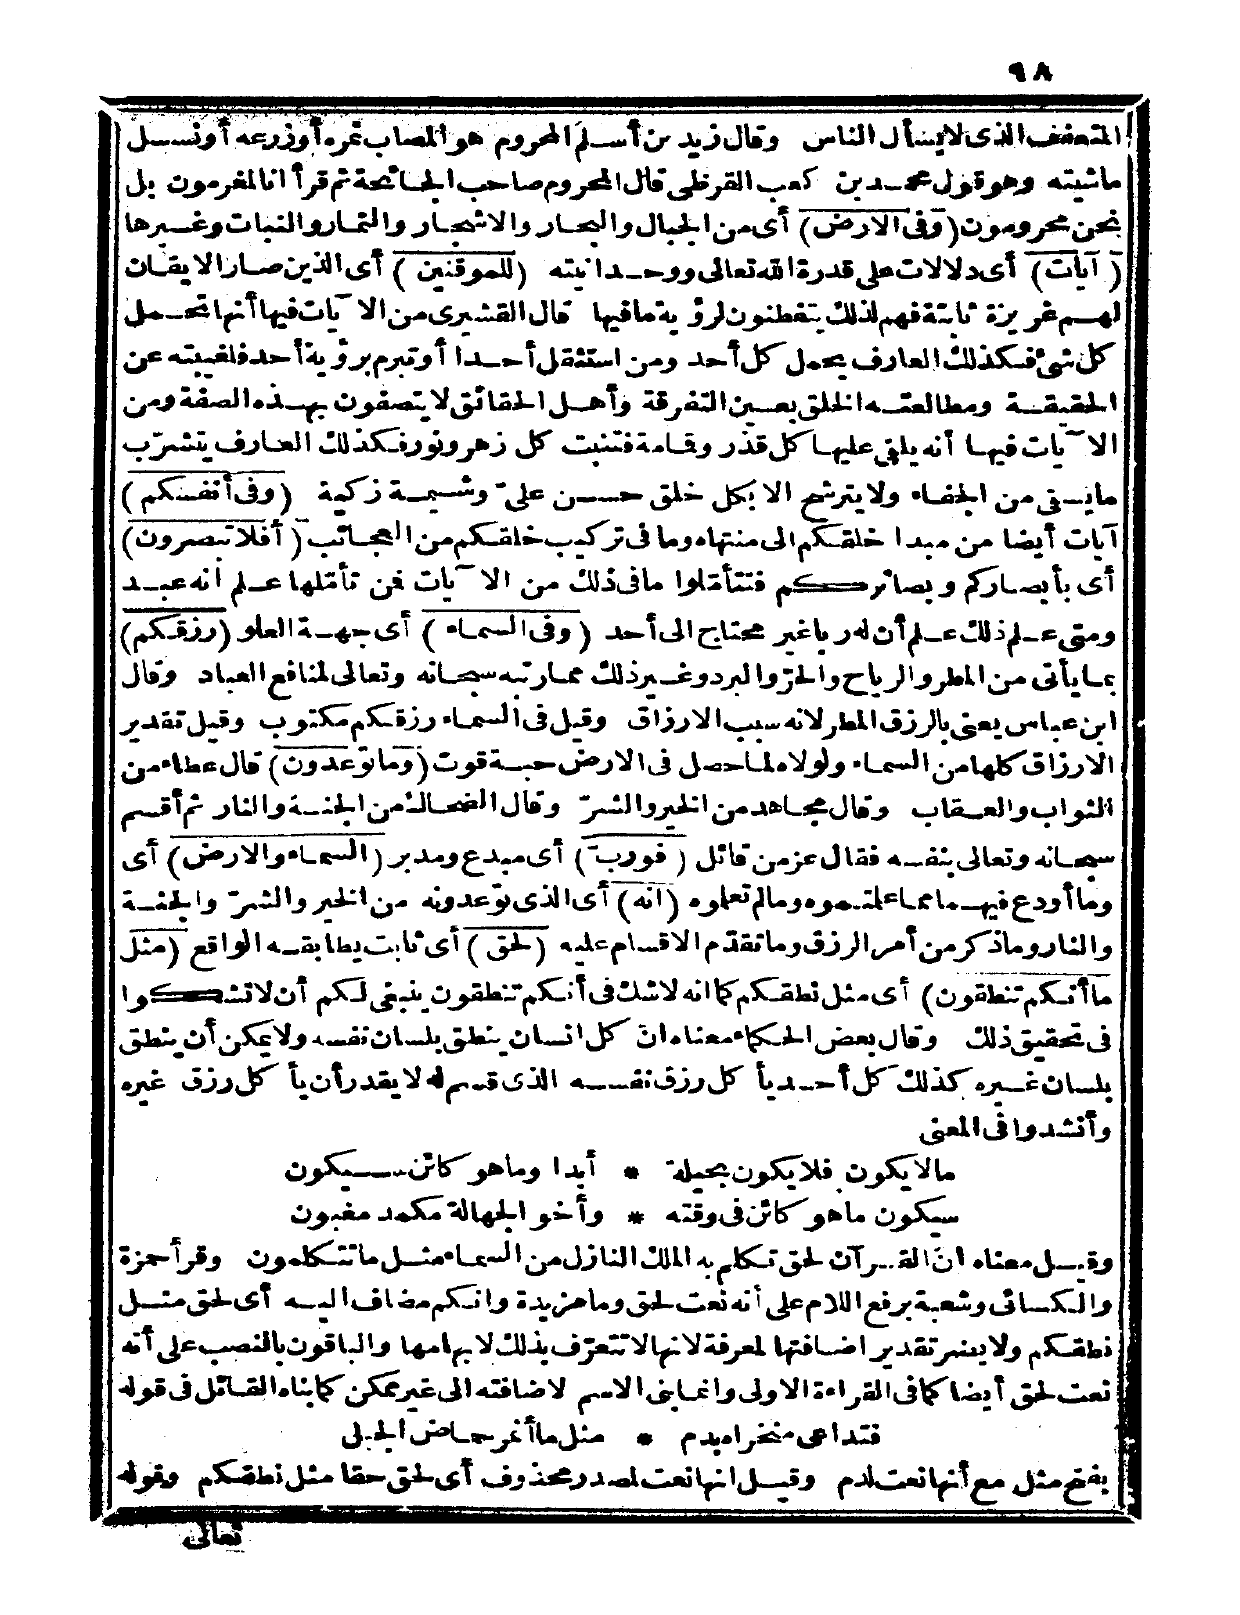 ٩٨
المتعفف الذى لا يسأل الناس وقال زيد بن أسلم المحروم هو المصاب ثمره أو زرعه أو نسل
ماشيته وهو قول محمد بن كعب القرظى قال المحروم صاحب الجائحة ثم قرأ انا لمغرمون بل
نحن محرومون (وفى الارض) أى من الجبال والبحار والاشجار والثمار والنبات وغيرها
(آيات) أى دلالات على قدرة الله تعالى ووحدانيته (للموقنين) أى الذين صار الايقان
لهم غريزة ثابتة فهم لذلك يتفطنون لرؤية ما فيها قال القشيرى من الآيات فيها أنها تحمل
كل شئ فكذلك العارف يحمل كل أحد ومن استثقل أحدا أو تبرم برؤية أحد فلغيبته عن
الحقيقة ومطالعته الخلق بعين التفرقة وأهل الحقائق لا يتصفون بهذه الصفة ومن
الآيات فيها أنه يلقى عليها كل قذر وقمامة فتنبت كل زهر ونور فكذلك العارف يتشرب
ما يسقى من الجفاء ولا يترشح الا بكل خلق حسن علىّ وشيمة زكية (وفى أنفسكم)
آيات أيضا من مبدا خلقكم الى منتهاه وما فى تركيب خلقكم من العجائب (أفلا تبصرون)
أى بأبصاركم وبصائركم فتتأملوا ما فى ذلك من الآيات فمن تأملها علم انه عبد
ومتى علم ذلك علم أن له ربا غير محتاج الى أحد (وفى السماء) أى جهة العلو (رزقكم)
بما يأتى من المطر والرياح والحرّ والبرد وغير ذلك مما رتبه سبحانه وتعالى لمنافع العباد وقال
ابن عباس يعنى بالرزق المطر لانه سبب الارزاق وقيل فى السماء رزقكم مكتوب وقيل تقدير
الارزاق كلها من السماء ولولاه لما حصل فى الارض حبة قوت (وما توعدون) قال عطاء من
الثواب والعقاب وقال مجاهد من الخير والشرّ وقال الضحاك من الجنة والنار ثم أقسم
سبحانه وتعالى بنفسه فقال عز من قائل (فورب) أى مبدع ومدبر (السماء والارض) أى
وما أودع فيهما مما علمتموه وما لم تعلموه (انه) أى الذى توعدونه من الخير والشرّ والجنة
والنار وما ذكر من أمر الرزق وما تقدّم الاقسام عليه (لحق) أى ثابت يطابقه الواقع (مثل
ما أنكم تنطقون) أى مثل نطقكم كما انه لا شك فى أنكم تنطقون ينبغى لكم أن لا تشكوا
فى تحقيق ذلك وقال بعض الحكماء معناه انّ كل انسان ينطق بلسان نفسه ولا يمكن أن ينطق
بلسان غيره كذلك كل أحد يأكل رزق نفسه الذى قسم له لا يقدر أن يأكل رزق غيره
وأنشدوا فى المعنى
ما لا يكون فلا يكون بحيلة * أبدا وما هو كائن سيكون
سيكون ما هو كائن فى وقته * وأخو الجهالة مكمد مغبون
وقيل معناه انّ القرآن لحق تكلم به الملك النازل من السماء مثل ما تتكلمون وقرأ حمزة
والكسائى وشعبة برفع اللام على أنه نعت لحق وما مزيدة وانكم مضاف اليه أى لحق مثل
نطقكم ولا يضر تقدير اضافتها لمعرفة لانها لا تتعرّف بذلك لابهامها والباقون بالنصب على أنه
نعت لحق أيضا كما فى القراءة الاولى وانما بنى الاسم لاضافته الى غير ممكن كما بناه القائل فى قوله
فتداعى منخراه بدم * مثل ما أثمر حماض الجبل
بفتح مثل مع أنها نعت لدم وقيل انها نعت لمصدر محذوف أى لحق حقا مثل نطقكم وقوله
تعالى